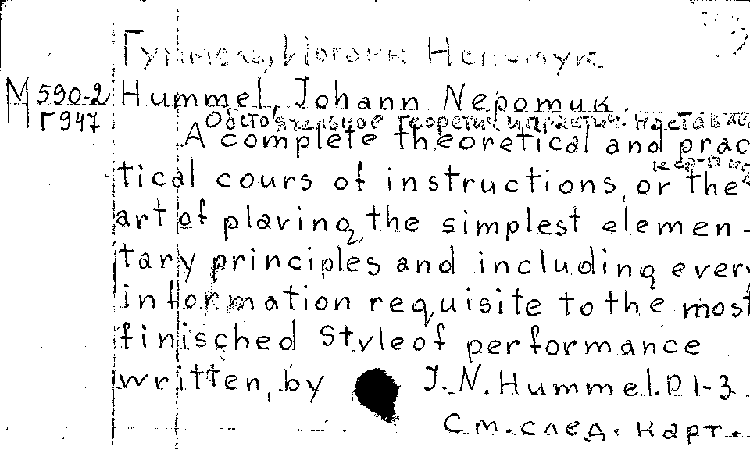 Гуммель, Иоганн Непомук
М 590-2
Г 947
Hummel, Johann Nepomuk.
Обстоятельное теоретич. и практич. наставле
A complete theoretical and prac
tical cours of instructions, or the
art of playing the simplest elemen-
tary principles and including every
information requisite to the most
finisched Style of performance
written, by J. N. Hummel. P 1-3.
См. след. карт.